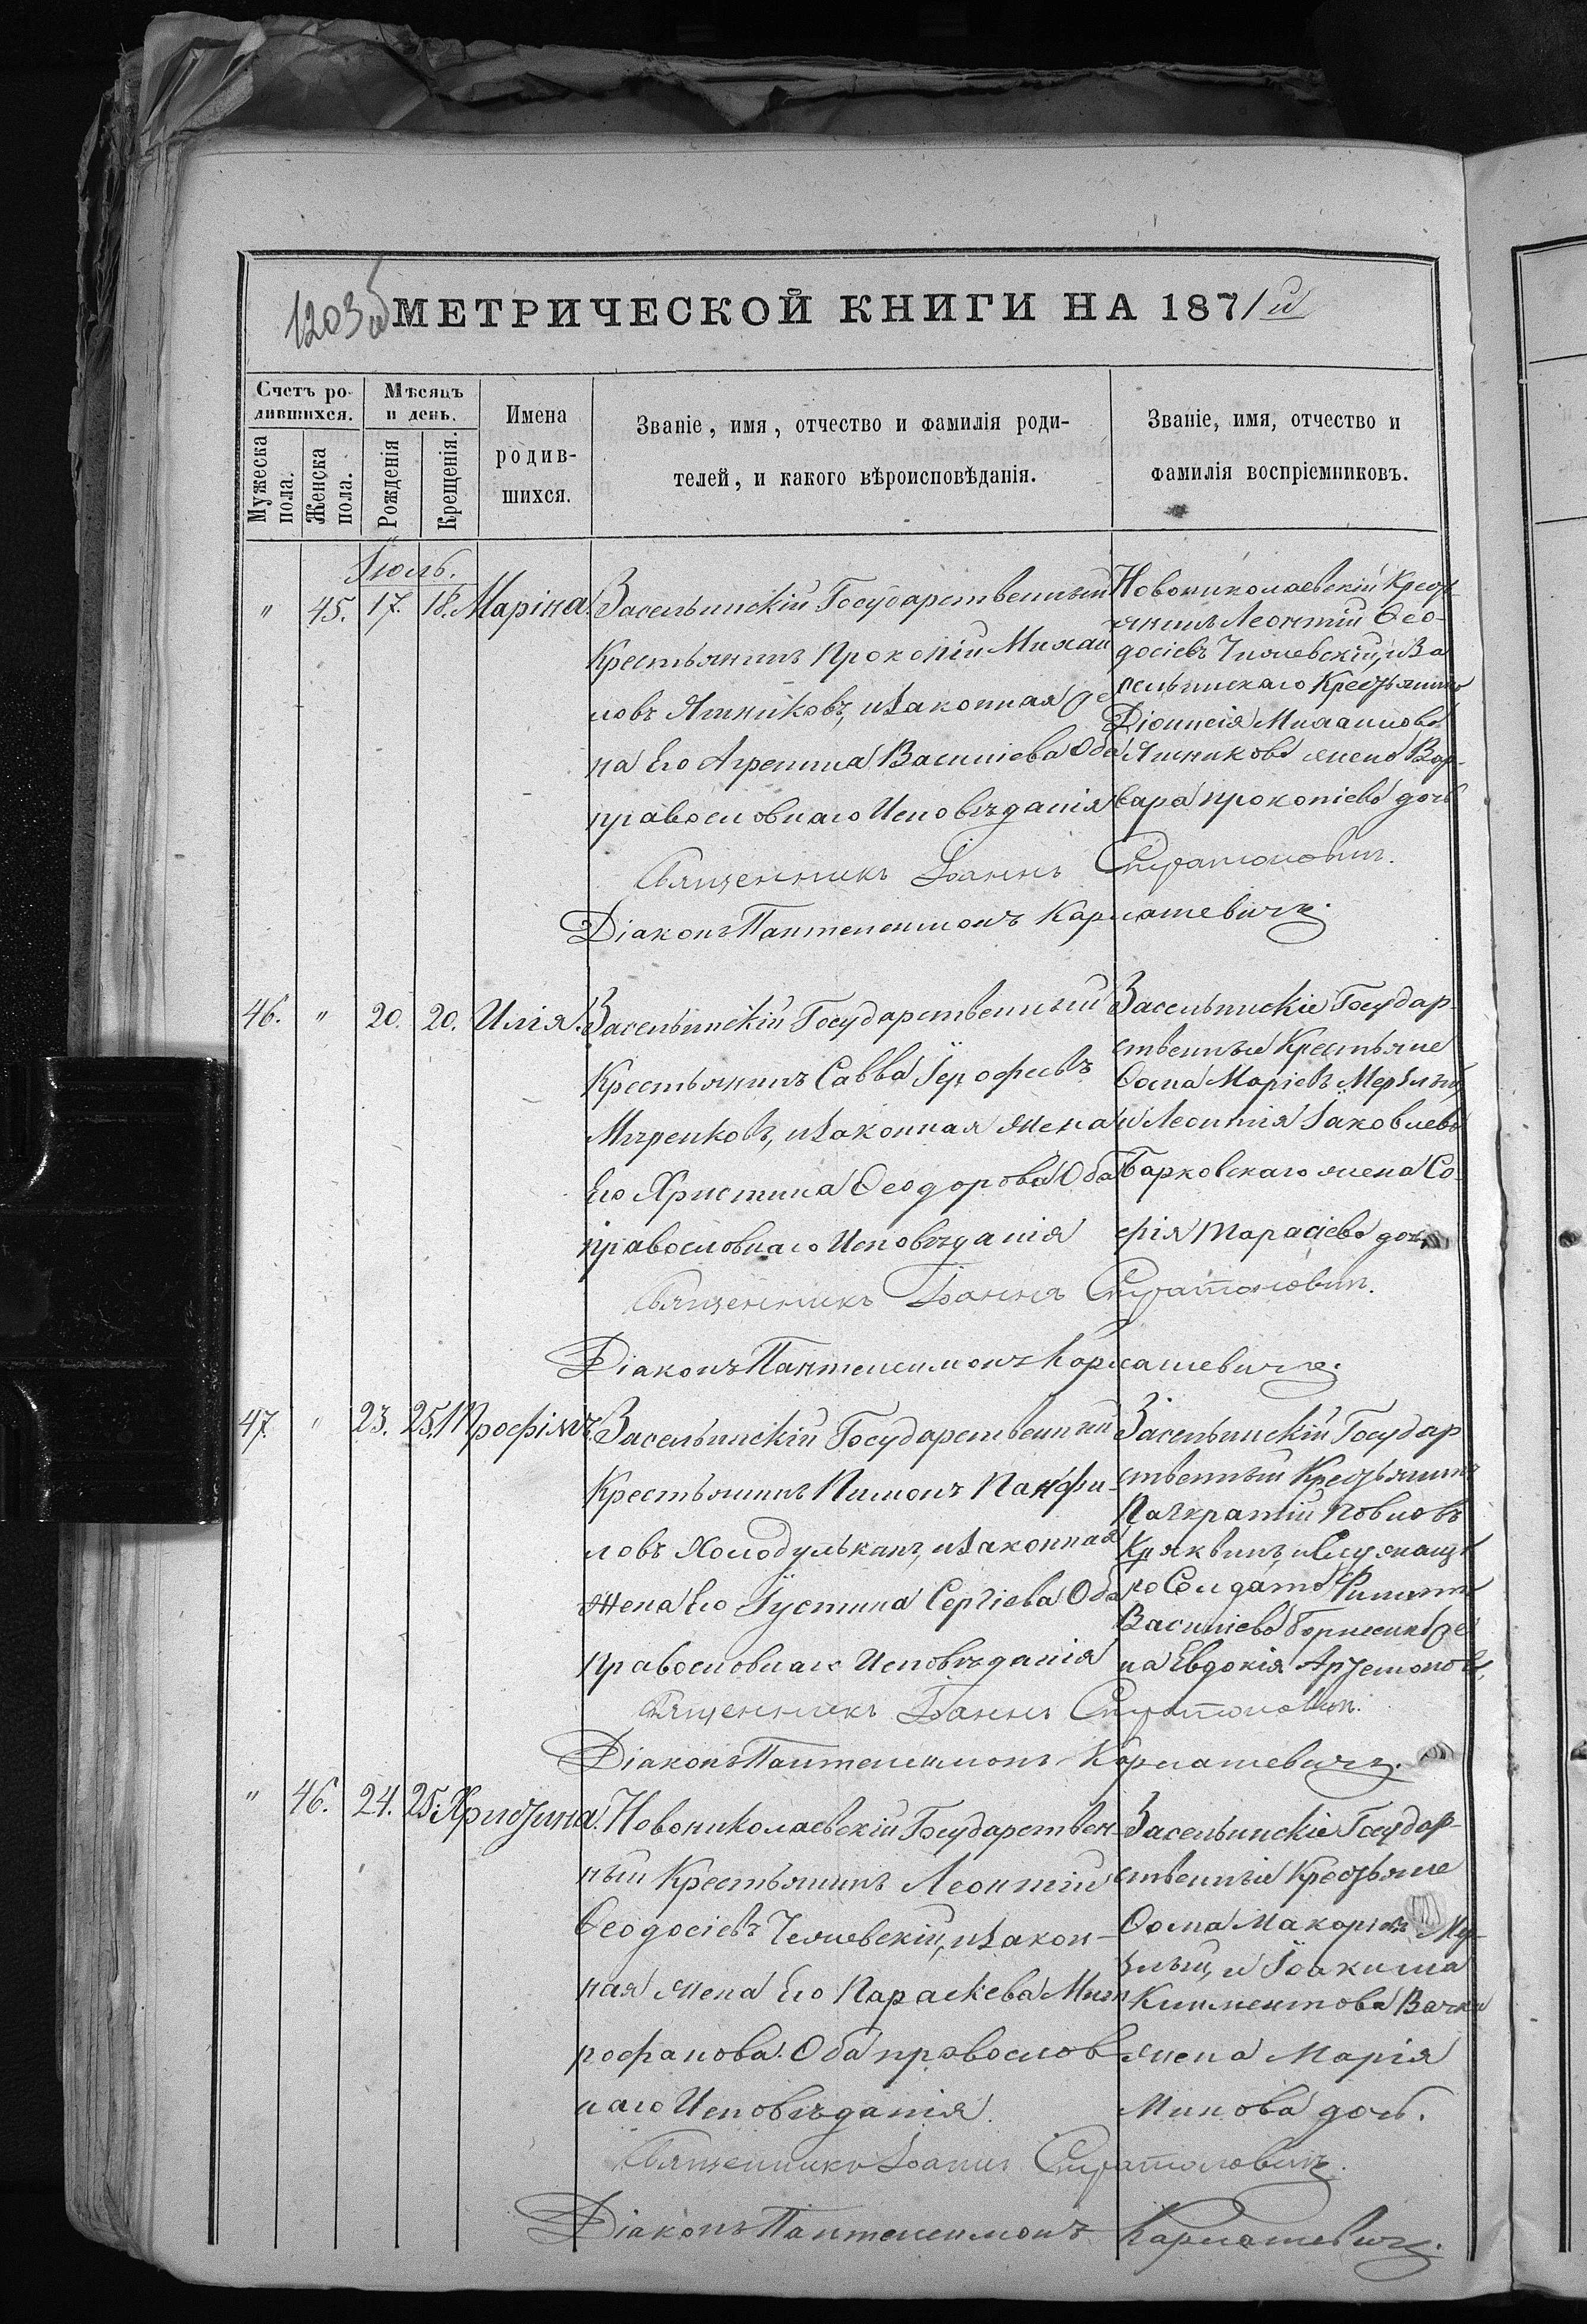 1203об МЕТРИЧЕСКОЙ КНИГИ НА 1871й
Счетъ ро-
лившихся.
Мужеска пола.
Женска пола.
Мѣсяцъ
и день.
Рожденія
Крещенія.
Имена
родив-
шихся.
Званіе, имя, отчество и фамилія роди-
телей, и какого вѣроисповѣданія.
Званіе, имя, отчество и
фамилія воспріемниковъ.
Іюль.
" 45. 17. 18. Маріна.
Засельинскій Государственный
Крестьянинъ Прокопій Михаи
ловъ Ятниковъ, изаконная же
на Его Агрепина Василіева Оба
православнаго Исповѣданія
Новониколаевскій Крест
янинъ Леонтій Ѳео-
досіевъ Чиляевскій, и За
сельинскаго Крестьянина
Діонисія Михаилова
Ятникова жена Вар-
вара прокопіева дочь
Священникъ Іоаннъ
Діаконъ Пантелеимонъ Кармашевичъ.
46. " 20. 20. Илія.
Засельинскій Государственный
Крестьянинъ Савва Іерофеевъ
Мигренковъ, изаконная жена
Его Христина Ѳеодорова Оба
православнаго Исповѣданія
Засельинскіе Государ-
ственные Крестьяне
Ѳома Маріевъ Мерзлый
и Леонтія Іаковлева
Барковскаго жена Со-
фія Тарасіева дочь
Священникъ Іоаннъ
Діаконъ Пантелеимонъ Кармашевичъ.
47. " 23. 25. Трофімъ.
Засельинскій Государственный
Крестьянинъ Пимонъ Панфи-
ловъ Холодулькинъ, изаконная
жена Его Іустина Сергіева Оба
Православнаго Исповѣданія
Засельинскій Государ
ственный Крестьянинъ
Панкратій Повловъ
Кряквинъ, и Служаща
го Солдата Филиппа
Василіева же
на Евдокія Артемонов.
Священникъ Іоаннъ
Діаконъ Пантелеимонъ Кармашевичъ.
" 46. 24. 25. Христина.
Новониколаевскій Государствен-
ный Крестьянинъ Леонтій
Ѳеодосіевъ Челяевскій, изакон-
ная жена Его Параскева Мит
рофанова. Оба православ-
наго Исповѣданія.
Засельинскіе Государ-
ственные Крестьяне
Ѳома Макаріевъ Мер-
злый, и Іоакима
Климентова
жена Марія
Минова дочь.
Священникъ Іоаннъ
Діаконъ Пантелеимонъ Кармашевичъ.